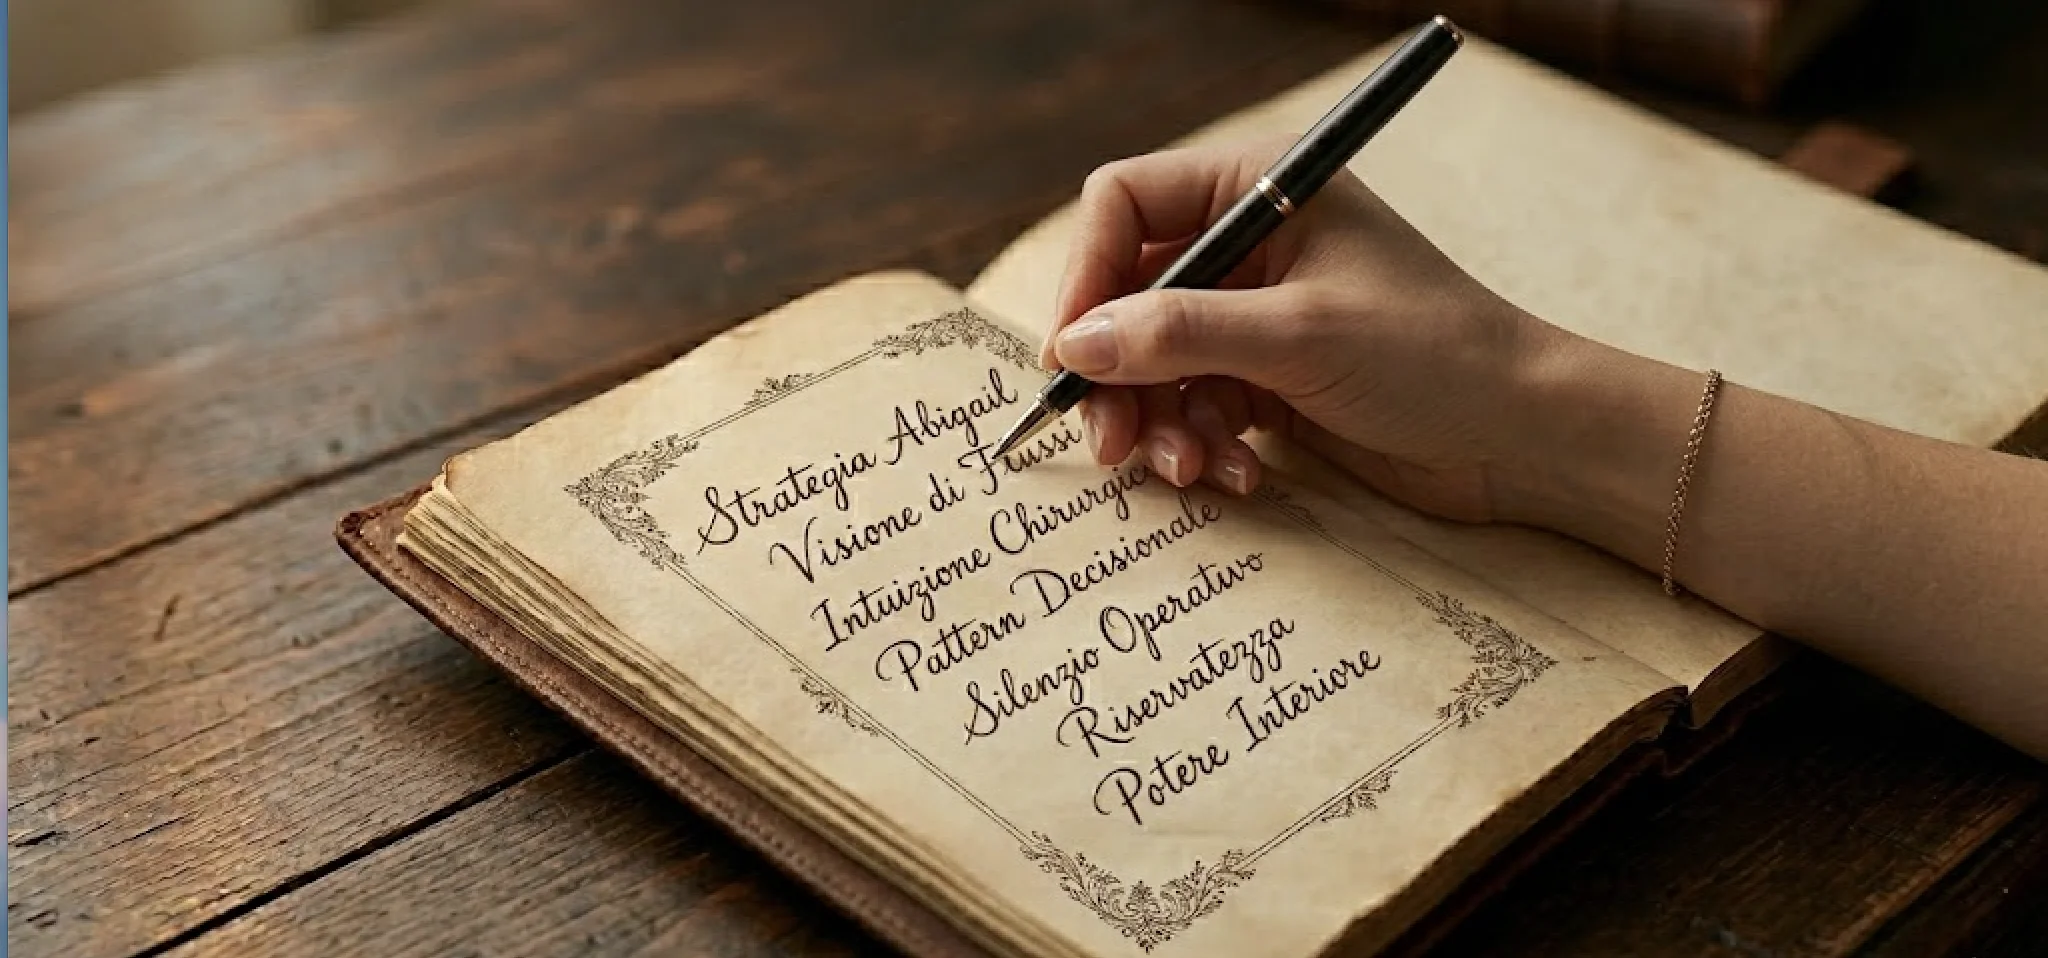 Strategia Abigail
Visione di Flussi
Intuizione Chirurgic
Pattern Decisionale
Silenzio Operativo
Riservatezza
Potere Interiore